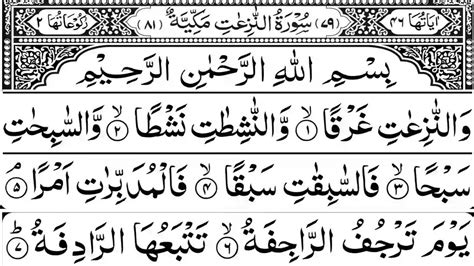 اٰیَاتُهَا ۴۶ (۷۹) سُوْرَةُ النّٰزِعٰتِ مَكِّیَّةٌ (۸۱) رُكُوْعَاتُهَا ۲
بِسْمِ اللّٰهِ الرَّحْمٰنِ الرَّحِیْمِ
وَالنّٰزِعٰتِ غَرْقًا ۙ‏﴿۱﴾ وَّالنّٰشِطٰتِ نَشْطًا ۙ‏﴿۲﴾ وَّالسّٰبِحٰتِ
سَبْحًا ۙ‏﴿۳﴾ فَالسّٰبِقٰتِ سَبْقًا ۙ‏﴿۴﴾ فَالْمُدَبِّرٰتِ اَمْرًا ۘ‏﴿۵﴾
یَوْمَ تَرْجُفُ الرَّاجِفَةُ ۙ‏﴿۶﴾ تَتْبَعُهَا الرَّادِفَةُ ؕ‏﴿۷﴾